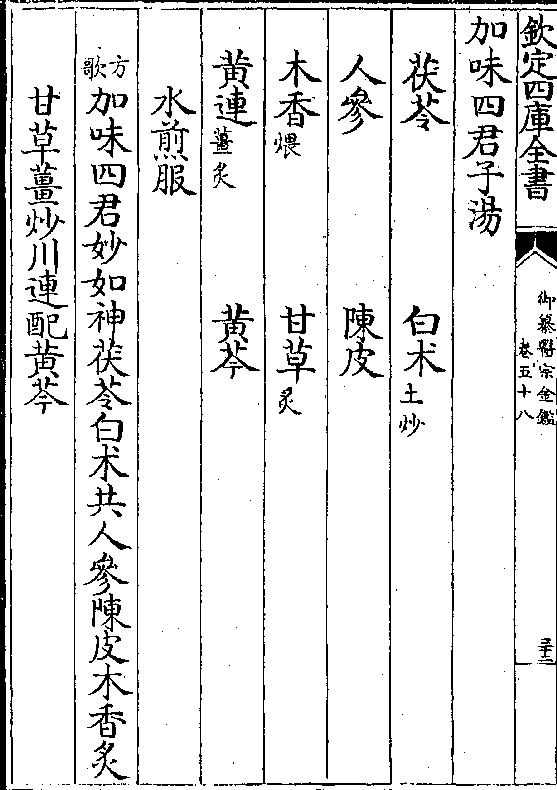 欽定四庫全書
御纂醫宗金鑑
卷五十八
加味四君子湯
茯苓 白朮土炒
人參 陳皮
木香煨 甘草炙
黃連薑炙 黃芩
水煎服
方歌 加味四君妙如神茯苓白朮共人參陳皮木香炙
甘草薑炒川連配黃芩